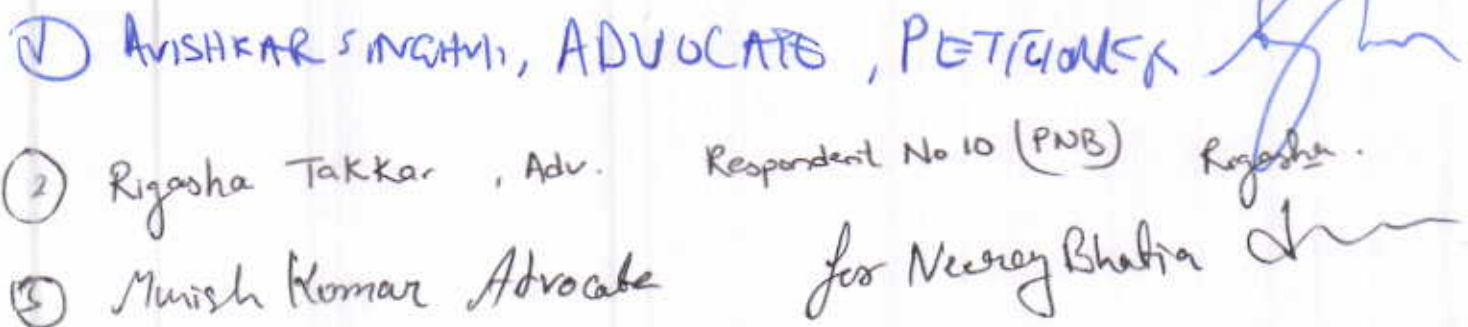 ① AVISHKAR SINGHVI, ADVOCATE, PETITIONER
② Rigasha Takkar, Adv. Respondent No 10 (PNB) Rigasha.
③ Munish Kumar Advocate for Neeraj Bhatia